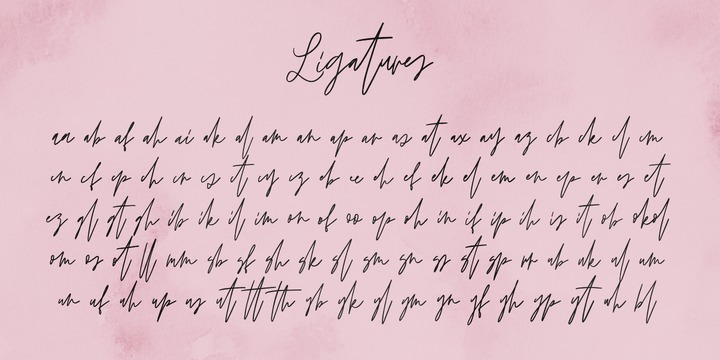 Ligatures
aa ab af ah ai ak al am an ap ar as at ax ay az cb ck cl cm
cn cf cp ch cr cs ct cy cz eb ee eh ef ek el em en ep er es et
ez gl gt gh ib ik il im on of oo op oh in if ip ih is it ob ok ol
om os ot ll mm sb sf sh sk sl sm sn sp st sp rr ub uk ul um
un uf uh up us ut tt th yb yk yl ym yn yf yh yp yt wh bl